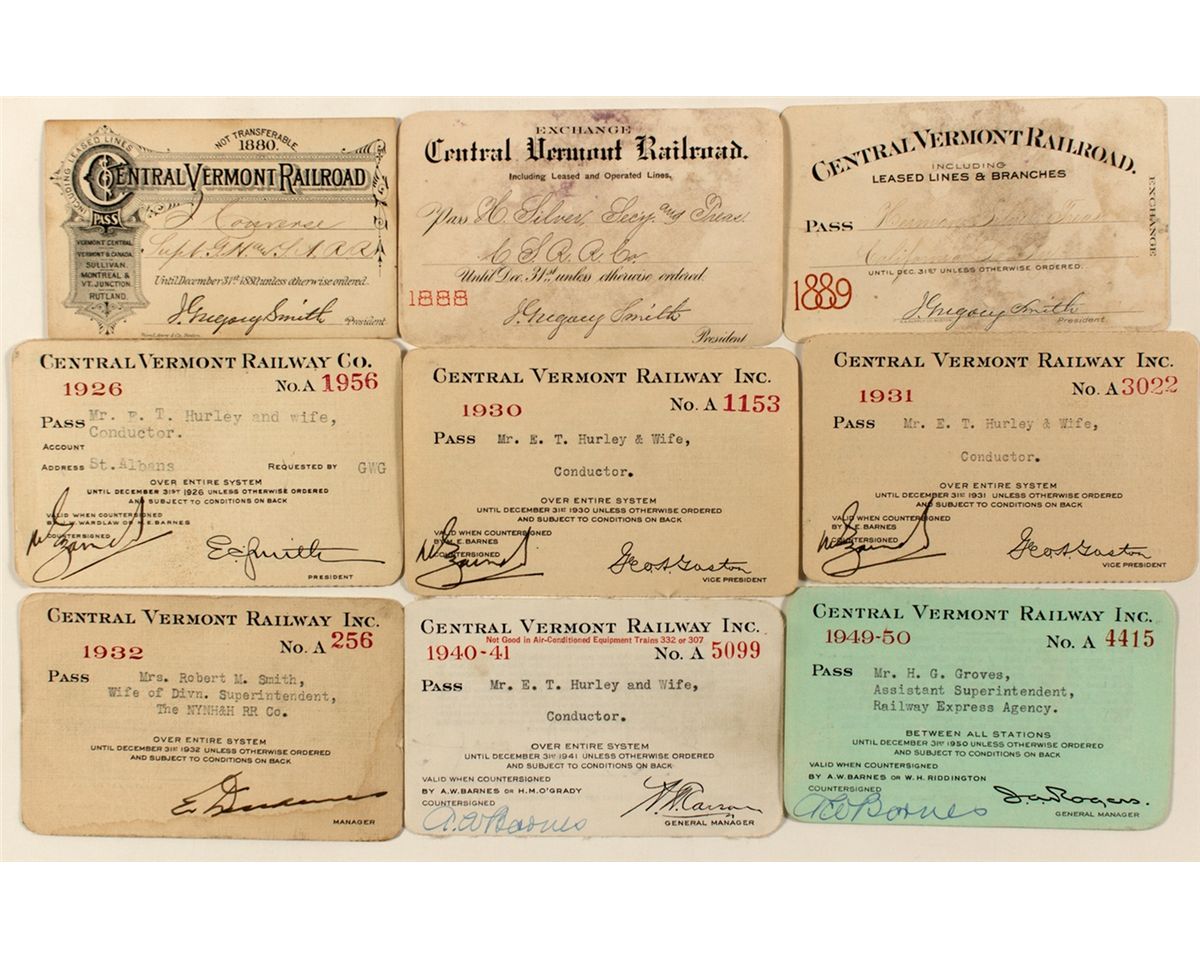 NOT TRANSFERABLE
1880.
INCLUDING LEASED LINES
CENTRAL VERMONT RAILROAD
PASS
J Converse
Supt.
VERMONT CENTRAL.
VERMONT & CANADA.
SULLIVAN.
MONTREAL &
VT. JUNCTION.
RUTLAND.
Until December 31st 1880 unless otherwise ordered.
J. Gregory Smith President
EXCHANGE
Central Vermont Railroad.
Including Leased and Operated Lines,
Pass H. Silver, Secy. and Treas.
C S. R. R. Co.
Until Dec. 31st unless otherwise ordered.
1888
J Gregory Smith
President
CENTRAL VERMONT RAILROAD.
INCLUDING
LEASED LINES & BRANCHES
EXCHANGE
PASS
California
UNTIL DEC. 31ST UNLESS OTHERWISE ORDERED.
1889
J. Gregory Smith
President
CENTRAL VERMONT RAILWAY CO.
1926 No. A 1956
PASS Mr. E. T. Hurley and wife,
Conductor.
ACCOUNT
ADDRESS St. Albans REQUESTED BY GWG
OVER ENTIRE SYSTEM
UNTIL DECEMBER 31ST 1926 UNLESS OTHERWISE ORDERED
AND SUBJECT TO CONDITIONS ON BACK
VALID WHEN COUNTERSIGNED
WARDLAW OR N.E. BARNES
COUNTERSIGNED
E.C. Smith
PRESIDENT
CENTRAL VERMONT RAILWAY INC.
1930 No. A 1153
PASS Mr. E. T. Hurley & Wife,
Conductor.
OVER ENTIRE SYSTEM
UNTIL DECEMBER 31ST 1930 UNLESS OTHERWISE ORDERED
AND SUBJECT TO CONDITIONS ON BACK
VALID WHEN COUNTERSIGNED
BY N.E. BARNES
COUNTERSIGNED
Geo. A. Gaston
VICE PRESIDENT
CENTRAL VERMONT RAILWAY INC.
1931 No. A 3022
PASS Mr. E. T. Hurley & Wife,
Conductor.
OVER ENTIRE SYSTEM
UNTIL DECEMBER 31ST 1931 UNLESS OTHERWISE ORDERED
AND SUBJECT TO CONDITIONS ON BACK
VALID WHEN COUNTERSIGNED
BY N.E. BARNES
COUNTERSIGNED
Geo. A. Gaston
VICE PRESIDENT
CENTRAL VERMONT RAILWAY INC.
1932 No. A 256
PASS Mrs. Robert M. Smith,
Wife of Divn. Superintendent,
The NYNH&H RR Co.
OVER ENTIRE SYSTEM
UNTIL DECEMBER 31ST 1932 UNLESS OTHERWISE ORDERED
AND SUBJECT TO CONDITIONS ON BACK
MANAGER
CENTRAL VERMONT RAILWAY INC.
Not Good in Air-Conditioned Equipment Trains 332 or 307
1940-41 No. A 5099
PASS Mr. E. T. Hurley and Wife,
Conductor.
OVER ENTIRE SYSTEM
UNTIL DECEMBER 31ST 1941 UNLESS OTHERWISE ORDERED
AND SUBJECT TO CONDITIONS ON BACK
VALID WHEN COUNTERSIGNED
BY A.W. BARNES OR H.M. O'GRADY
COUNTERSIGNED
A.W. Barnes
GENERAL MANAGER
CENTRAL VERMONT RAILWAY INC.
1949-50 No. A 4415
PASS Mr. H. G. Groves,
Assistant Superintendent,
Railway Express Agency.
BETWEEN ALL STATIONS
UNTIL DECEMBER 31ST 1950 UNLESS OTHERWISE ORDERED
AND SUBJECT TO CONDITIONS ON BACK
VALID WHEN COUNTERSIGNED
BY A.W. BARNES OR W.H. RIDDINGTON
COUNTERSIGNED
A.W. Barnes J.A. Rogers.
GENERAL MANAGER